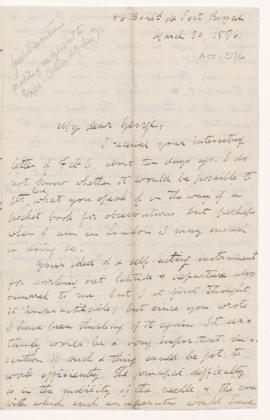 Boul'd de Port Royal
March 30, 1876.
Acc. 2196
My dear George,
I received your interesting
letter of Feb 6, about ten days ago. I do
not know whether it would be possible to
get what you speak of in the way of a
pocket book for observations, but perhaps
when I am in London I may succeed
in doing so.
Your idea of a self-acting instrument
for working out latitude & departure also
occurred to me, but I at first thought
it impracticable, but since you wrote
I have been thinking of it again. It cer-
tainly would be a very important in-
vention if such a thing could be got to
work efficiently. The principal difficulty
is in the mobility of the needle & the ease
with which such an apparatus would